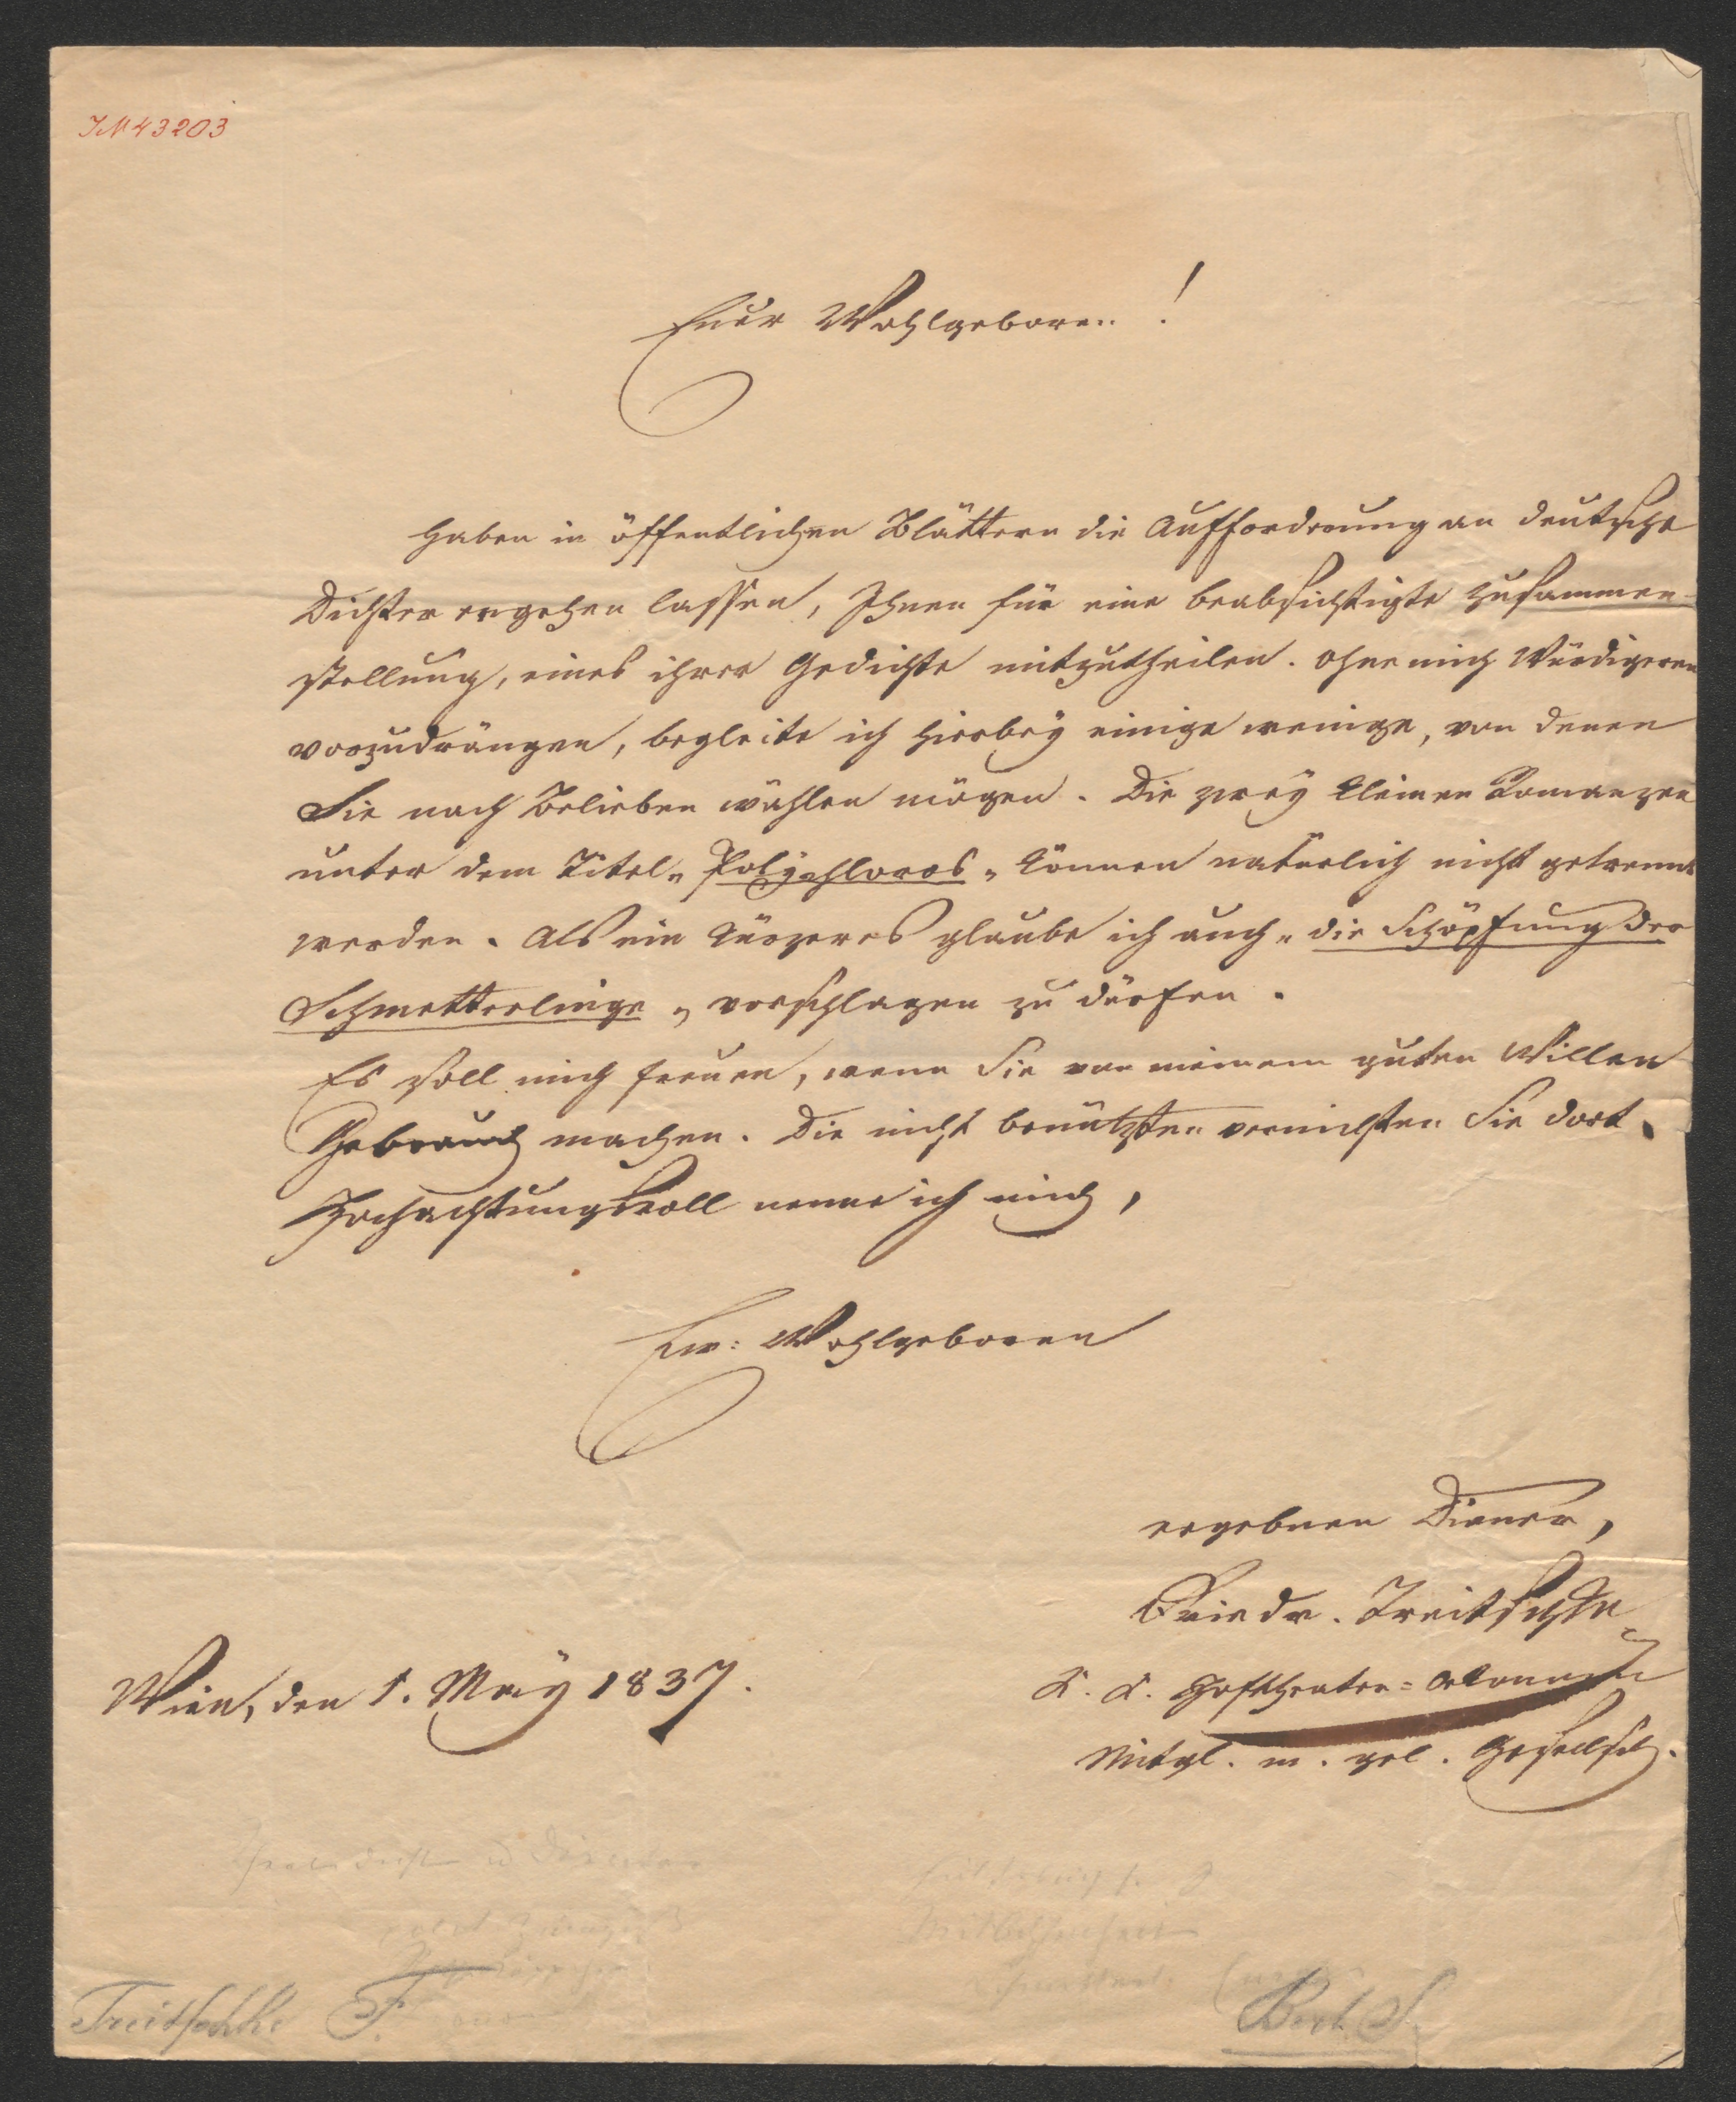 IN 43203
Euer Wohlgeboren !
haben in öffentlichen Blättern die Aufforderung an deutsche
Dichter ergehen lassen, Ihnen für eine beabsichtigte Zusammen-
stellung, eines ihrer Gedichte mitzutheilen. Ohne mich Würdigeren
vorzudrängen, begleite ich hierbey einige wenige, von denen
Sie nach Belieben wählen mögen. Die zwey kleinen Romanzen
unter dem Titel „Polychloros„ können natürlich nicht getrennt
werden. Als ein kürzeres glaube ich auch „die Schöpfung der
Schmetterlinge„ vorschlagen zu dürfen.
Es soll mich freuen, wenn Sie von meinem guten Willen
Gebrauch machen. Die nicht benützten vernichten Sie dort.
Hochachtungsvoll nenne ich mich,
Ew: Wohlgeboren
ergebnen Diener,
Friedr. Treitschke
Wien, den 1. May 1837.
K. K. Hoftheater=Oekonom
Mitgl. m. gel. Gesellsch.
Treitschke F.